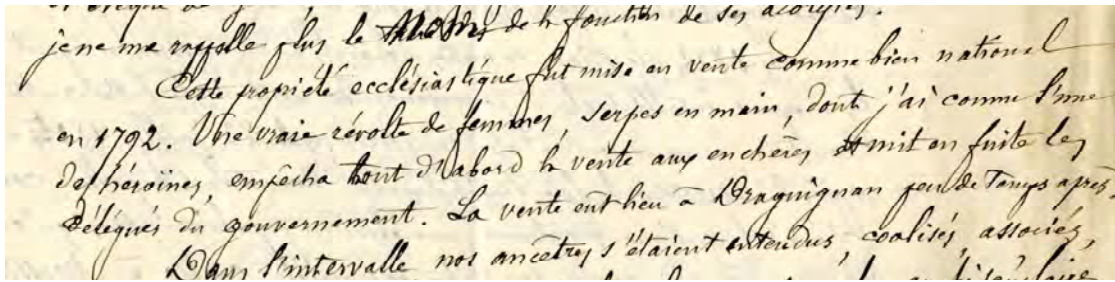 je ne me rappelle plus le de la fonction de ses acolytes.
Cette propiété ecclésiastique fut mise en vente comme bien national
en 1792. Une vraie révolte de femmes, serpes en main, dont j'ai connu l'une
des héroïnes, empêcha tout d'abord la vente aux enchères et mit en fuite les
délégués du gouvernement. La vente eut lieu à Draguignan peu de temps après.
Dans l'intervalle nos ancêtres s'étaient entendus, coalisés, associés,